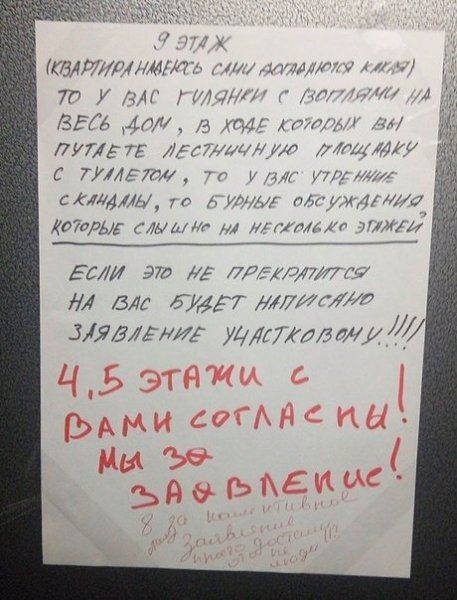 9 ЭТАЖ
(КВАРТИРА НАДЕЮСЬ САМИ ДОГАДАЮТСЯ КАКАЯ)
ТО У ВАС ГУЛЯНКИ С ВОПЛЯМИ НА
ВЕСЬ ДОМ, В ХОДЕ КОТОРЫХ ВЫ
ПУТАЕТЕ ЛЕСТНИЧНУЮ ПЛОЩАДКУ
С ТУАЛЕТОМ, ТО У ВАС УТРЕННИЕ
СКАНДАЛЫ, ТО БУРНЫЕ ОБСУЖДЕНИЯ
КОТОРЫЕ СЛЫШНО НА НЕСКОЛЬКО ЭТАЖЕЙ
ЕСЛИ ЭТО НЕ ПРЕКРАТИТСЯ
НА ВАС БУДЕТ НАПИСАНО
ЗАЯВЛЕНИЕ УЧАСТКОВОМУ!!!!
4,5 ЭТАЖИ С
ВАМИ СОГЛАСНЫ!
МЫ ЗА
ЗАЯВЛЕНИЕ!
8 за
заявление
просто достали
это не
люди!!!